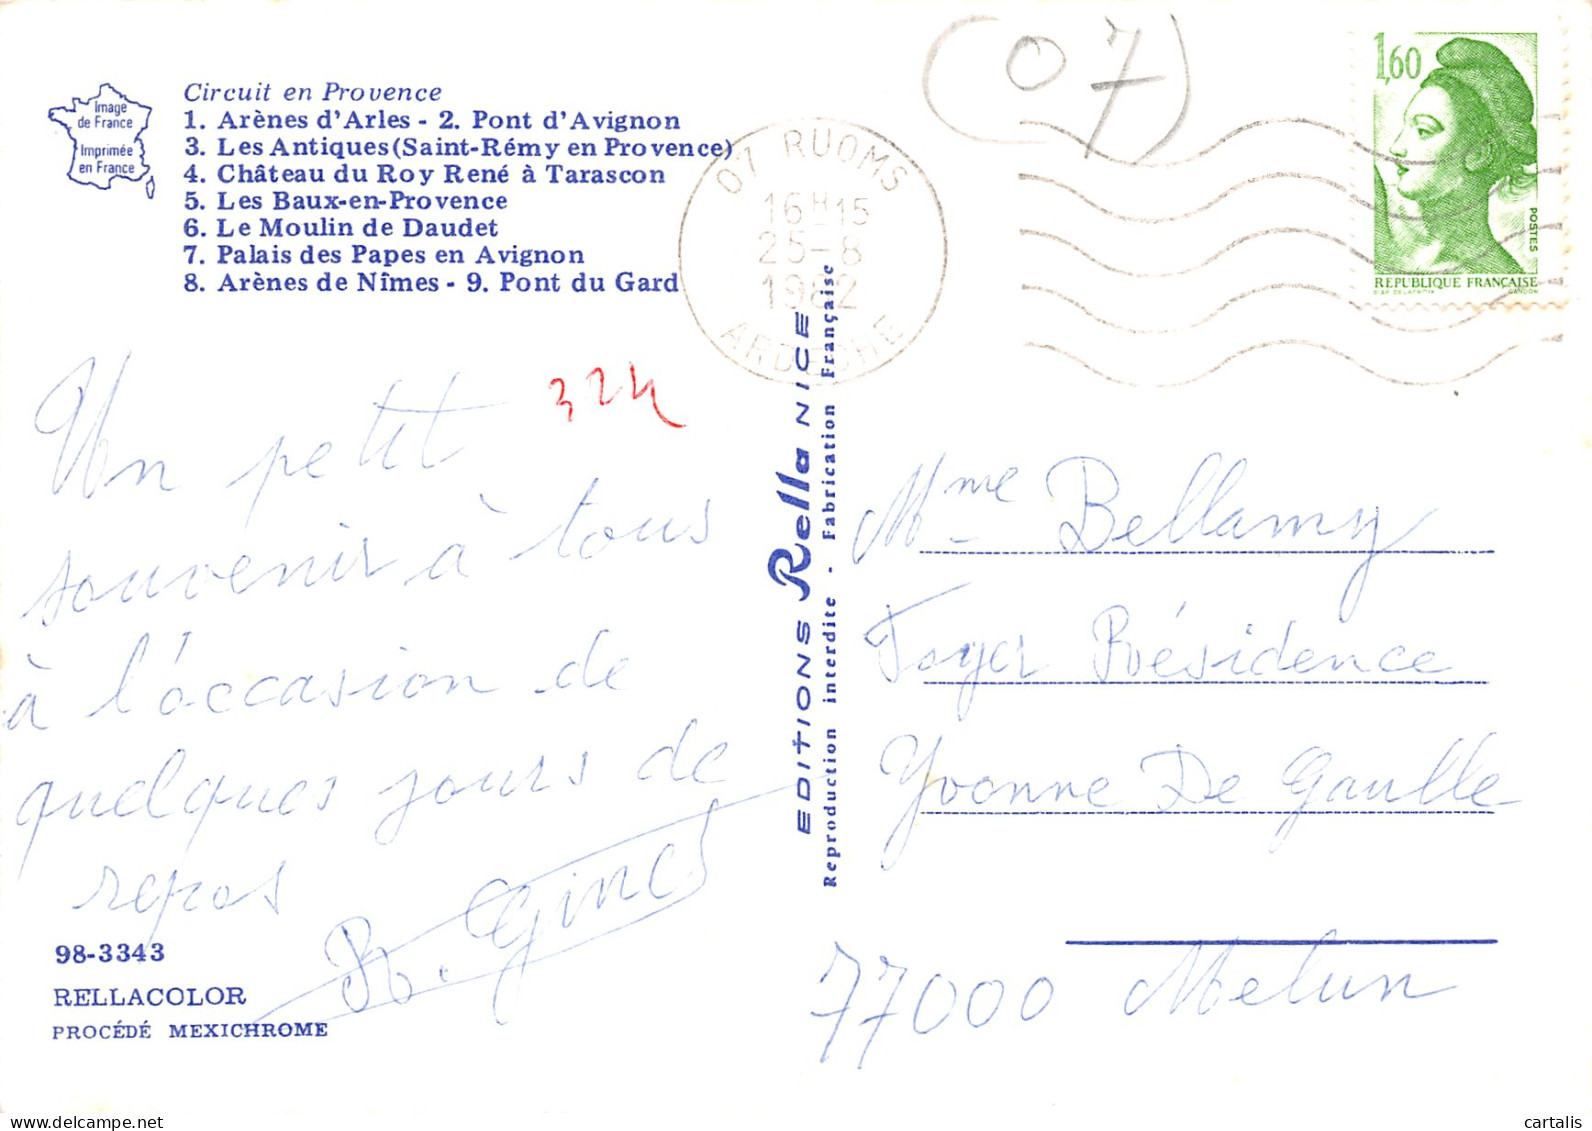 Image
de France
Imprimée
en France
Circuit en Provence
1. Arènes d'Arles - 2. Pont d'Avignon
3. Les Antiques (Saint-Rémy en Provence)
4. Château du Roy René à Tarascon
5. Les Baux-en-Provence
6. Le Moulin de Daudet
7. Palais des Papes en Avignon
8. Arènes de Nîmes - 9. Pont du Gard
(07)
07 RUOMS
16H15
25-8
1982
ARDECHE
1,60
POSTES
REPUBLIQUE FRANÇAISE
GANDON
324
Un petit
souvenir à tous
à l'occasion de
quelques jours de
repos
98-3343
RELLACOLOR
PROCÉDÉ MEXICHROME
EDITIONS Rella NICE
Reproduction interdite - Fabrication Française
Mme Bellamy
Foyer Résidence
Yvonne De Gaulle
77000 Melun